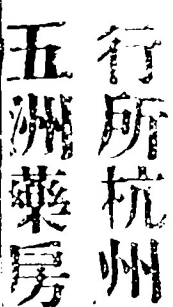 行所杭州
五洲藥房